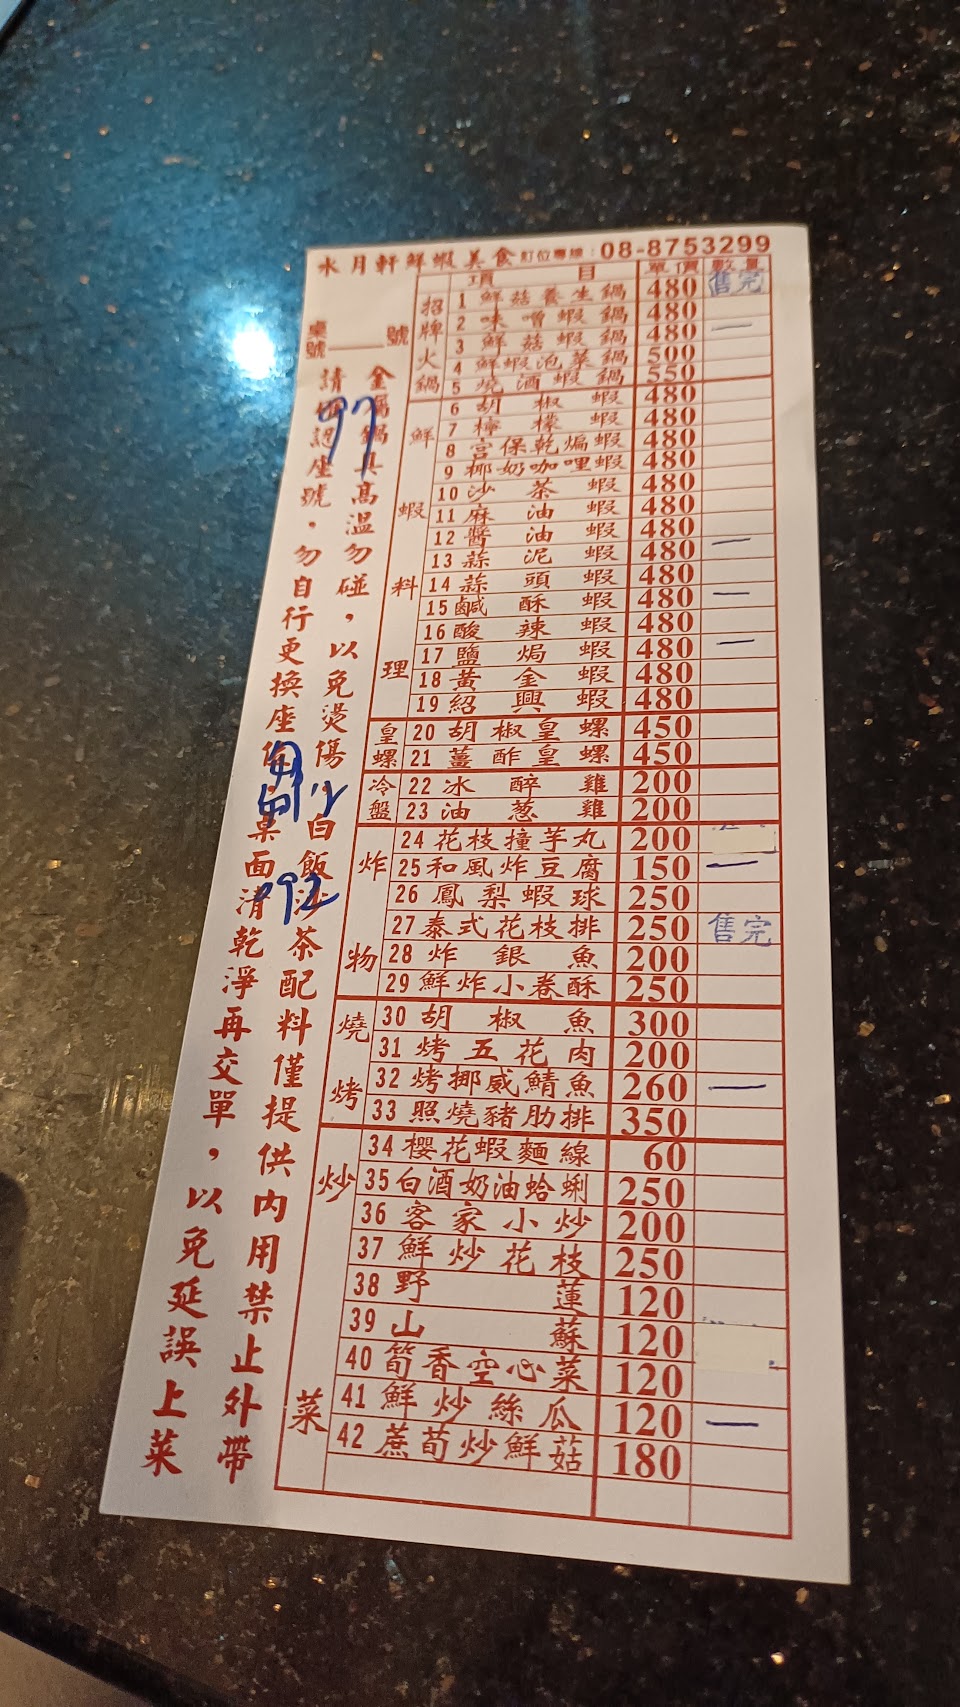 水月軒鮮蝦美食 訂位專線：08-8753299
項目 單價 數量
桌號____號
招牌火鍋
1 鮮菇養生鍋 480 售完
2 味噌蝦鍋 480
3 鮮菇蝦鍋 480 一
4 鮮蝦泡菜鍋 500
5 燒酒蝦鍋 550
鮮蝦料理
6 胡椒蝦 480
7 檸檬蝦 480
8 宮保乾煸蝦 480
9 椰奶咖哩蝦 480
10 沙茶蝦 480
11 麻油蝦 480
12 醬油蝦 480
13 蒜泥蝦 480 一
14 蒜頭蝦 480
15 鹹酥蝦 480 一
16 酸辣蝦 480
17 鹽焗蝦 480 一
18 黃金蝦 480
19 紹興蝦 480
皇螺
20 胡椒皇螺 450
21 薑酢皇螺 450
冷盤
22 冰醉雞 200
23 油葱雞 200
炸物
24 花枝撞芋丸 200
25 和風炸豆腐 150 一
26 鳳梨蝦球 250
27 泰式花枝排 250 售完
28 炸銀魚 200
29 鮮炸小卷酥 250
燒烤
30 胡椒魚 300
31 烤五花肉 200
32 烤挪威鯖魚 260 一
33 照燒豬肋排 350
炒菜
34 櫻花蝦麵線 60
35 白酒奶油蛤蜊 250
36 客家小炒 200
37 鮮炒花枝 250
38 野蓮 120
39 山蘇 120
40 筍香空心菜 120
41 鮮炒絲瓜 120 一
42 蔗荀炒鮮菇 180
金屬鍋具高溫勿碰，以免燙傷 白飯沙茶配料僅提供內用禁止外帶
請 記座號，勿自行更換座位 桌面清乾淨再交單，以免延誤上菜
97
92